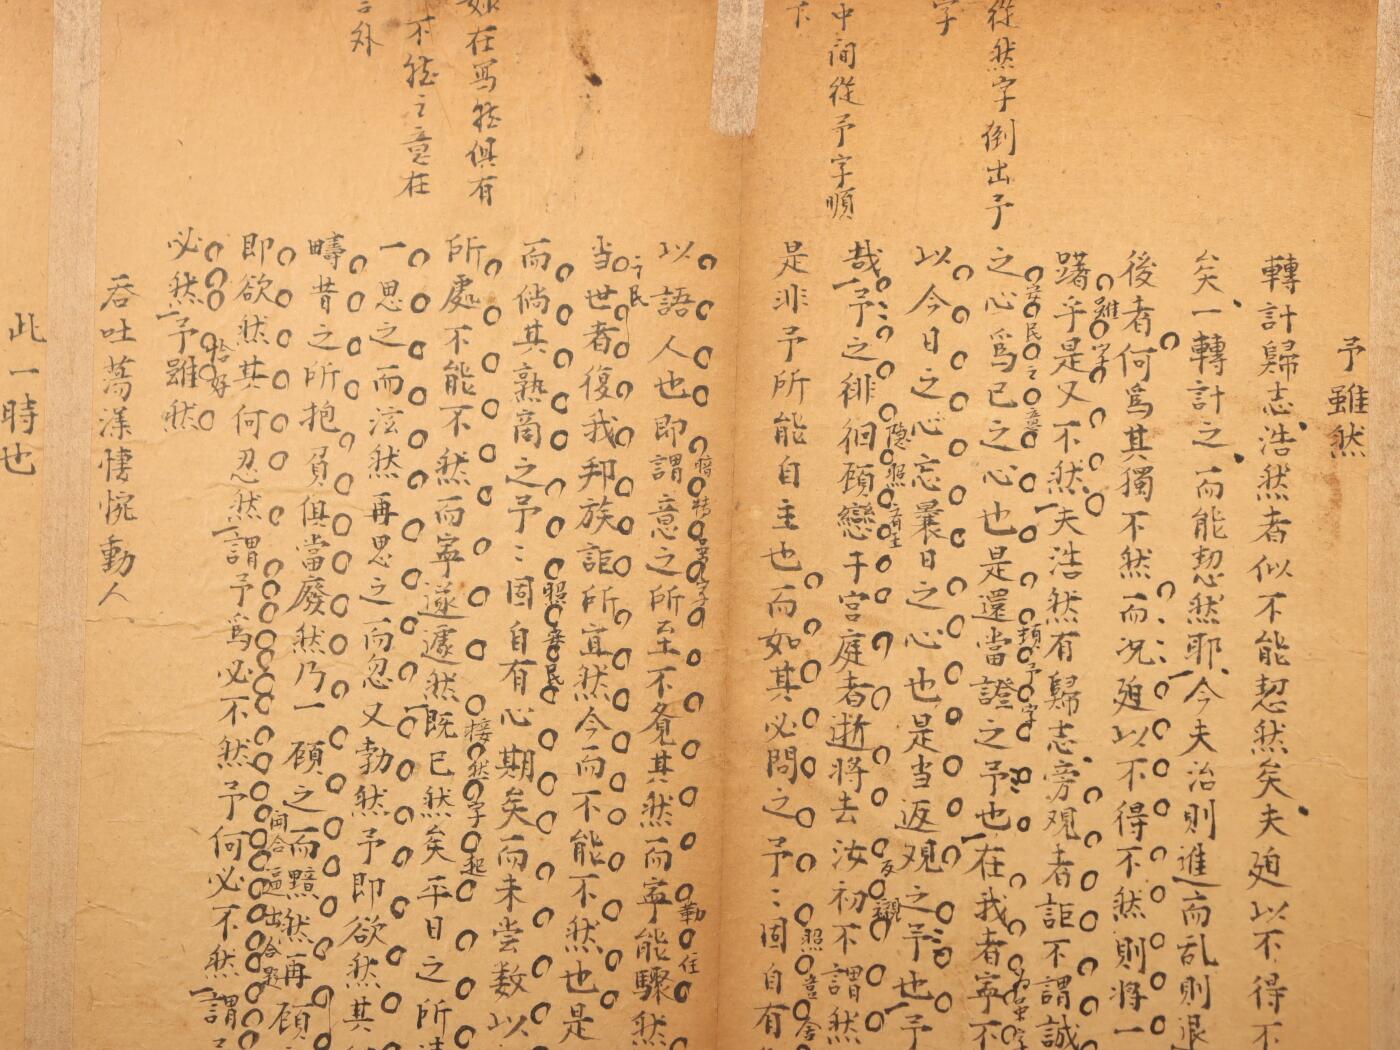 予雖然
轉計歸志浩然者似不能恝然矣夫廹以不得不
矣一轉計之而能恝然耶今夫治則進而乱則退
後者何爲其獨不然而况廹以不得不然則將一
躇乎是又不然夫浩然有歸志旁观者詎不謂誠
之心爲已之心也是還當證之予也在我者寧不
以今日之心忘曩日之心也是当返观之予也予
哉予之徘徊顧戀于宫庭者逝將去汝初不謂然
是非予所能自主也而如其必問之予〻固自有
以語人也即謂意之所至不覓其然而寧能驟然
当世者復我邦族詎所宜然今而不能不然也是
而倘其熟啇之予〻固自有心期矣而未尝数以
所處不能不然而寧遂遽然既已然矣平日之所
一思之而泫然再思之而忽又勃然予即欲然其
疇昔之所抱負俱當廢然乃一顧之而黯然再顧
即欲然其何忍然謂予爲必不然予何必不然謂
必然予雖然
吞吐蕩漾悽惋動人
此一時也
從然字倒出予
字
中間從予字順
下
如在寫然俱有
不然之意在
言外
雖字
照民之意
隐照
頂予字
反襯
照舍
勒住
之民
照庶民
接然字起
恰好
開合逼出合題